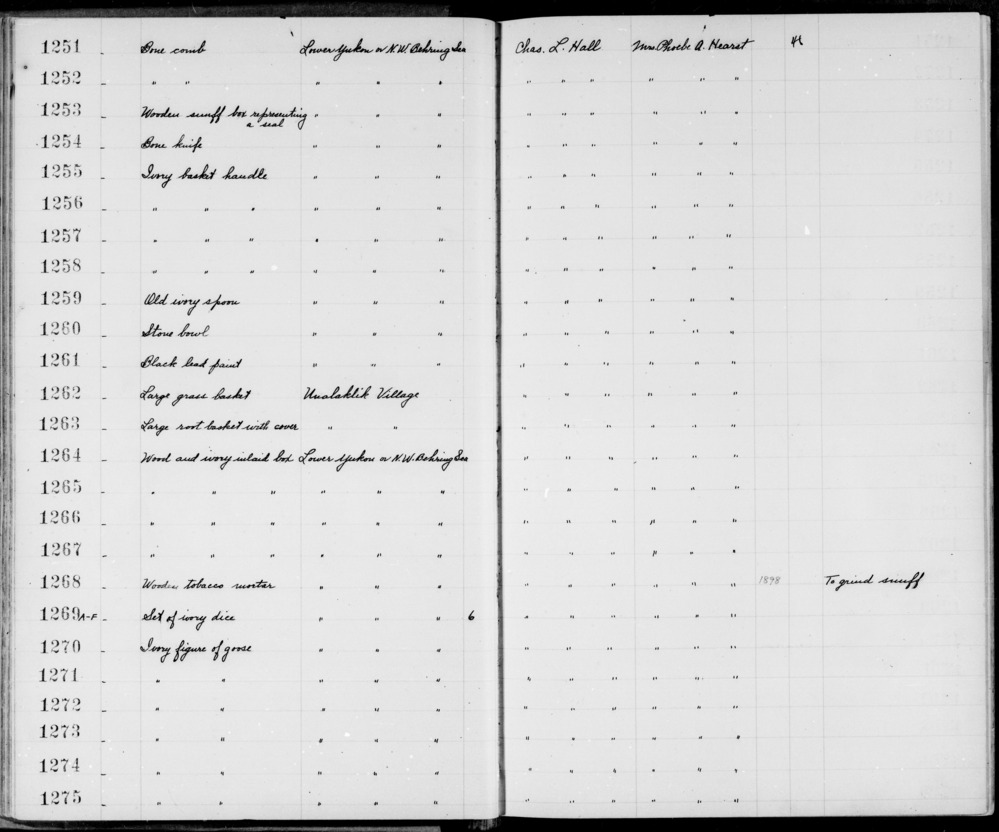 1251 - Bone comb Lower Yukon or N.W. Behring Sea Chas. L. Hall Mrs. Phoebe A. Hearst
1252 - " " " " " " " " " " "
1253 - Wooden snuff box representing " " " " " " " " "
a seal
1254 - Bone knife " " " " " " " " "
1255 - Ivory basket handle " " " " " " " " "
1256 - " " " " " " " " " " " "
1257 - " " " " " " " " " " " "
1258 - " " " " " " " " " " " "
1259 - Old ivory spoon " " " " " " " " "
1260 - Stone bowl " " " " " " " " "
1261 - Black lead paint " " " " " " " " "
1262 - Large grass basket Unalaklik Village " " " " " "
1263 - Large root basket with cover " " " " " " " "
1264 - Wood and ivory inlaid box Lower Yukon or N.W. Behring Sea " " " " " "
1265 - " " " " " " " " " " " "
1266 - " " " " " " " " " " " "
1267 - " " " " " " " " " " " "
1268 - Wooden tobacco mortar " " " " " " " " " 1898 To grind snuff
1269 A-F - Set of ivory dice " " " 6 " " " " " "
1270 - Ivory figure of goose " " " " " " " " "
1271 - " " " " " " " " " " "
1272 - " " " " " " " " " " "
1273 - " " " " " " " " " " "
1274 - " " " " " " " " " " "
1275 - " " " " " " " " " " "